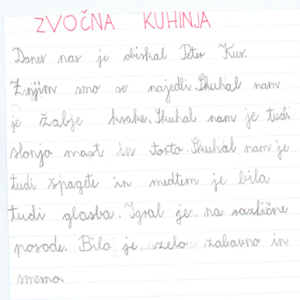 ZVOČNA KUHINJA
Danes nas je obiskal Peter Kus.
Z njim smo se najedli. Skuhal nam
je žabje krake. Skuhal nam je tudi
slonjo mast in torto. Skuhal nam je
tudi špagete in medtem je bila
tudi glasba. Igral je na različne
posode. Bilo je zelo zabavno in
smešno.